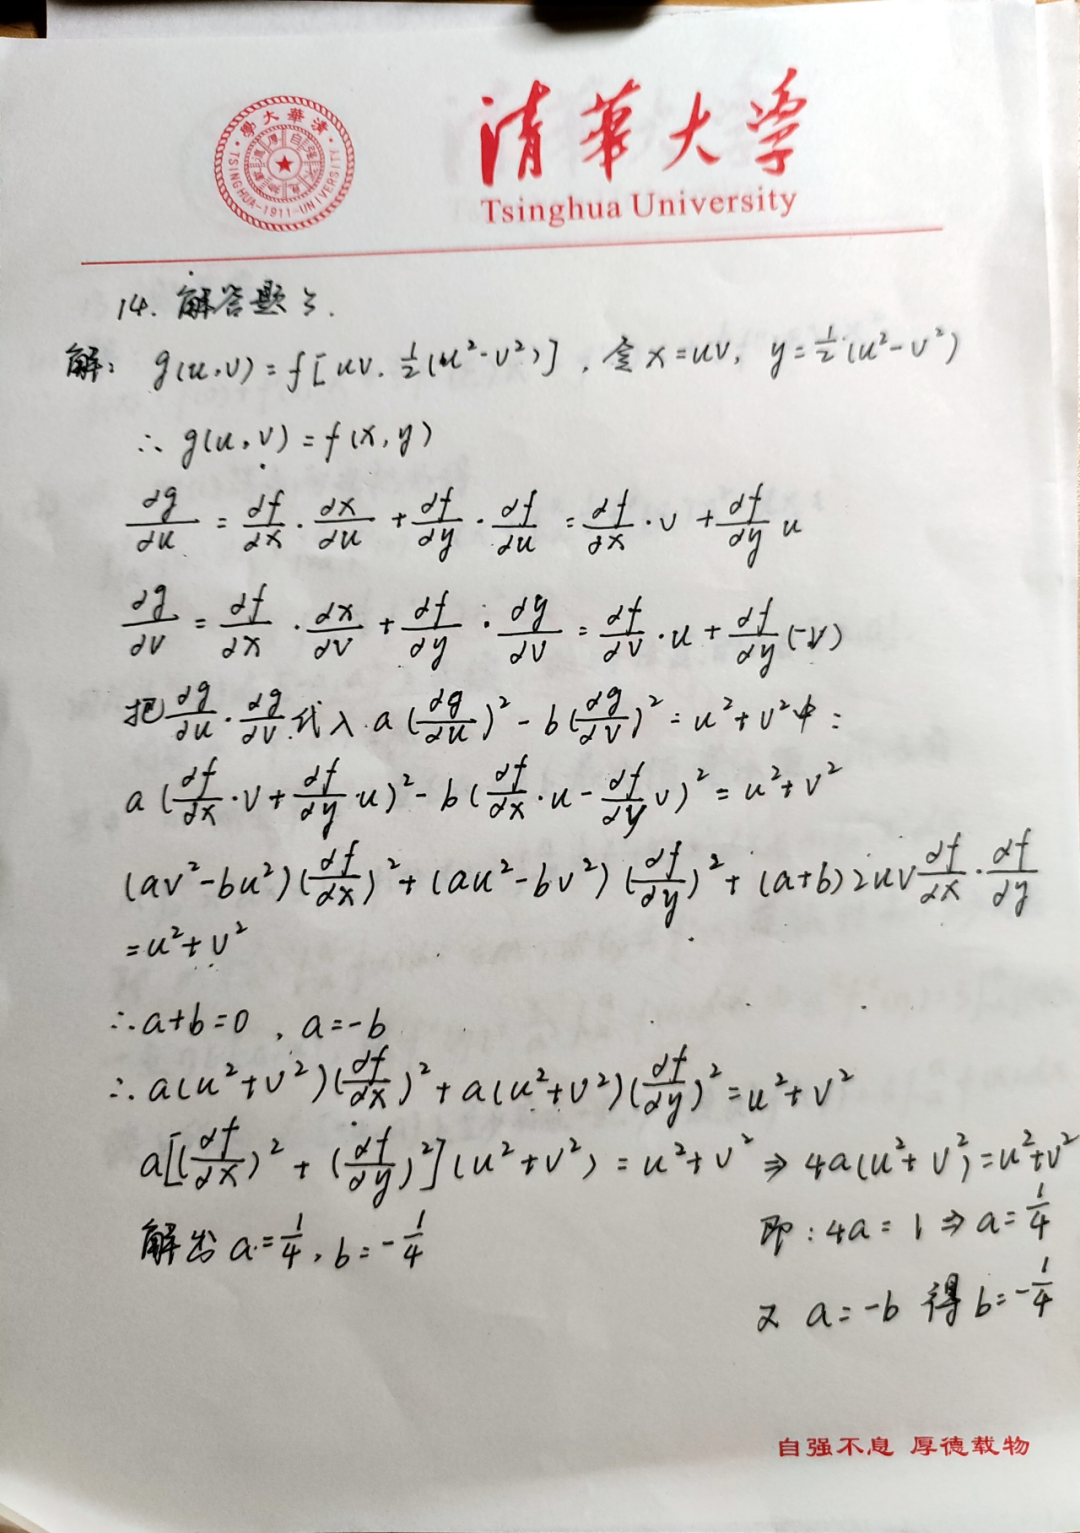 學大華清
自强不息
厚德載物
·TSINGHUA-1911-UNIVERSITY·
清華大学
Tsinghua University
14. 解答题3.
解: g(u,v)=f[uv, ½(u²-v²)], 令x=uv, y=½(u²-v²)
∴ g(u,v)=f(x,y)
∂g/∂u = ∂f/∂x · ∂x/∂u + ∂f/∂y · ∂f/∂u = ∂f/∂x · v + ∂f/∂y u
∂g/∂v = ∂f/∂x · ∂x/∂v + ∂f/∂y · ∂y/∂v = ∂f/∂v · u + ∂f/∂y (-v)
把 ∂g/∂u · ∂g/∂v 代入 a(∂g/∂u)² - b(∂g/∂v)² = u²+v² 中:
a(∂f/∂x · v + ∂f/∂y · u)² - b(∂f/∂x · u - ∂f/∂y v)² = u²+v²
(av²-bu²)(∂f/∂x)² + (au²-bv²)(∂f/∂y)² + (a+b)2uv ∂f/∂x · ∂f/∂y
=u²+v²
∴ a+b=0, a=-b
∴ a(u²+v²)(∂f/∂x)² + a(u²+v²)(∂f/∂y)² = u²+v²
a[(∂f/∂x)² + (∂f/∂y)²](u²+v²) = u²+v² ⇒ 4a(u²+v²)=u²+v²
解出 a=¼, b=-¼
即: 4a=1 ⇒ a=¼
又 a=-b 得 b=-¼
自强不息 厚德载物